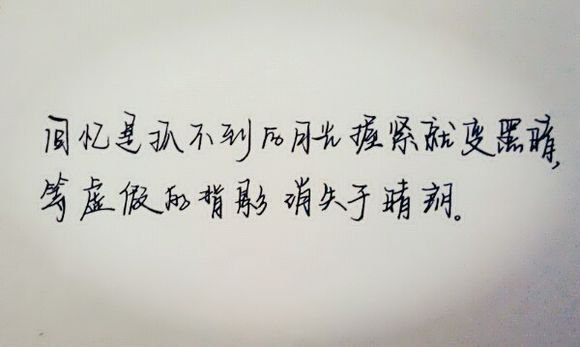 回忆是抓不到的月光握紧就变黑暗,
等虚假的背影消失于晴朗。